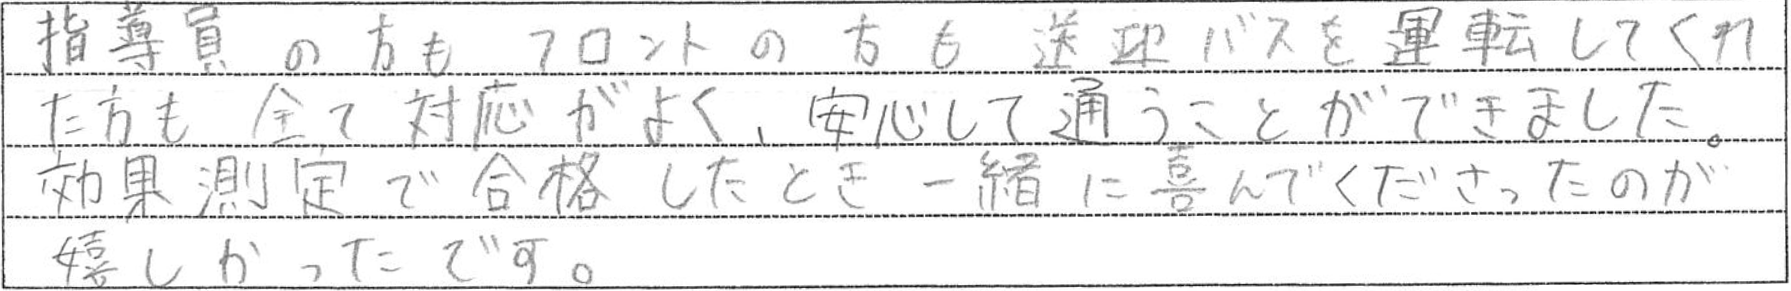 指導員の方もフロントの方も送迎バスを運転してくれ
た方も全て対応がよく、安心して通うことができました。
効果測定で合格したとき一緒に喜んでくださったのが
嬉しかったです。